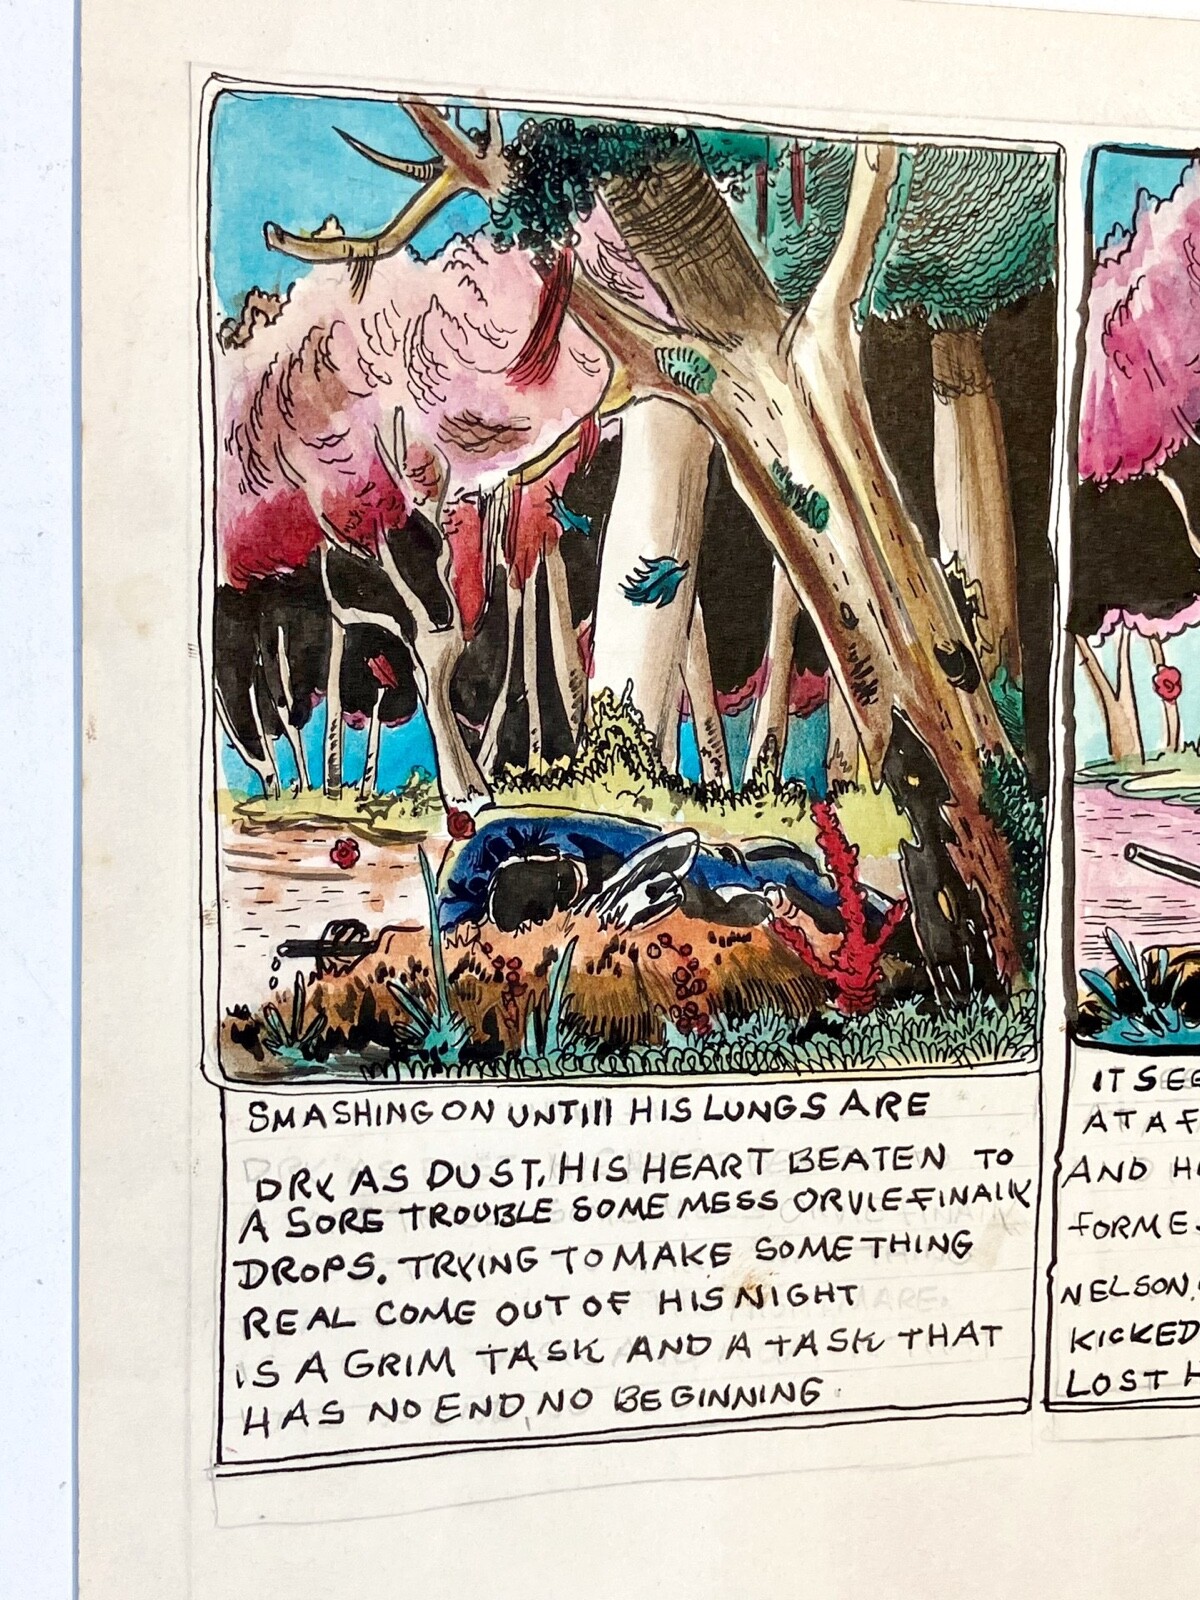 SMASHING ON UNTIll HIS LUNGS ARE
DRY AS DUST, HIS HEART BEATEN TO
A SORE TROUBLE SOME MESS ORVIE FINALLY
DROPS. TRYING TO MAKE SOMETHING
REAL COME OUT OF HIS NIGHT
IS A GRIM TASK AND A TASK THAT
HAS NO END, NO BEGINNING.
IT SEE
AT A F
AND HI
FORME
NELSON,
KICKED
LOST H